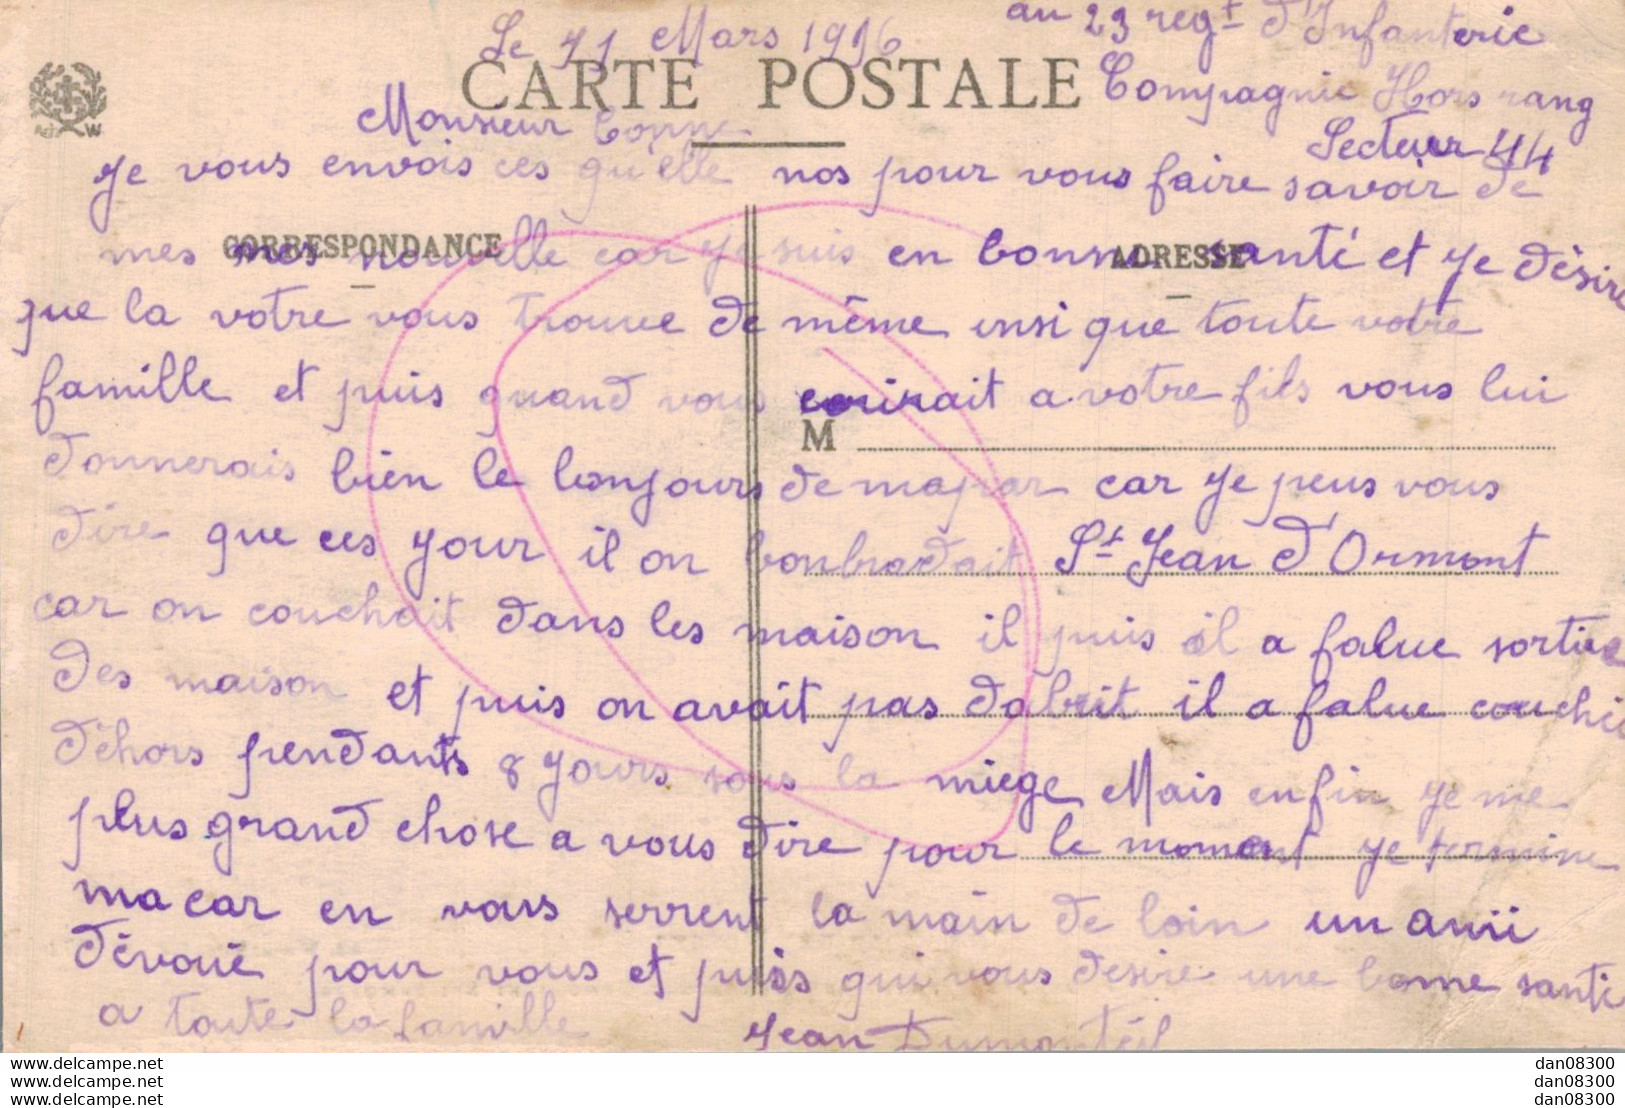 au 23 regt d'Infanterie
Le 11 Mars 1916
CARTE POSTALE
Compagnie Hors rang
Monsieur
Secteur 44
je vous envois ces qu'elle nos pour vous faire savoir de
CORRESPONDANCE
ADRESSE
mes mes nouvelle car je suis en bonne santé et je désire
que la votre vous trouve de même insi que toute votre
famille et puis quand vous ecrirait a votre fils vous lui
M
donnerais bien le bonjours de mapar car je peus vous
dire que ces jour il on bonbradait St Jean d'Ormont
car on couchait dans les maison il puis il a falue sortire
des maison et puis on avait pas dabrit il a falue couché
déhors pendants 8 jours sous la miege Mais enfin je me
plus grand chose a vous dire pour le moment je termine
ma car en vous serrent la main de loin un ami
dévoué pour vous et puis qui vous desire une bonne santé
a toute la famille
Jean Dumonteil
AW
www.delcampe.net
www.delcampe.net
www.delcampe.net
dan08300
dan08300
dan08300